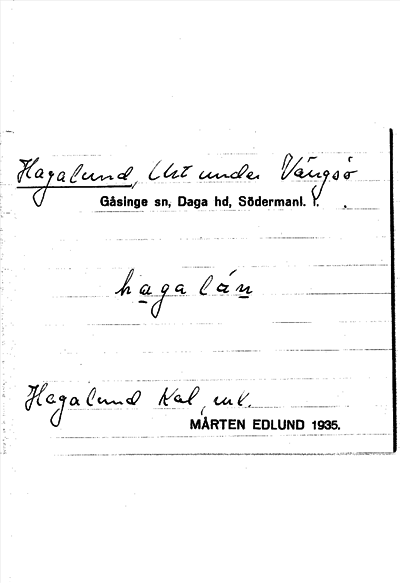 Hagalund, Utt under Vängsö
Gåsinge sn, Daga hd, Södermanl. l.
hagalán
Hagalund Kal, uk.
MÅRTEN EDLUND 1935.